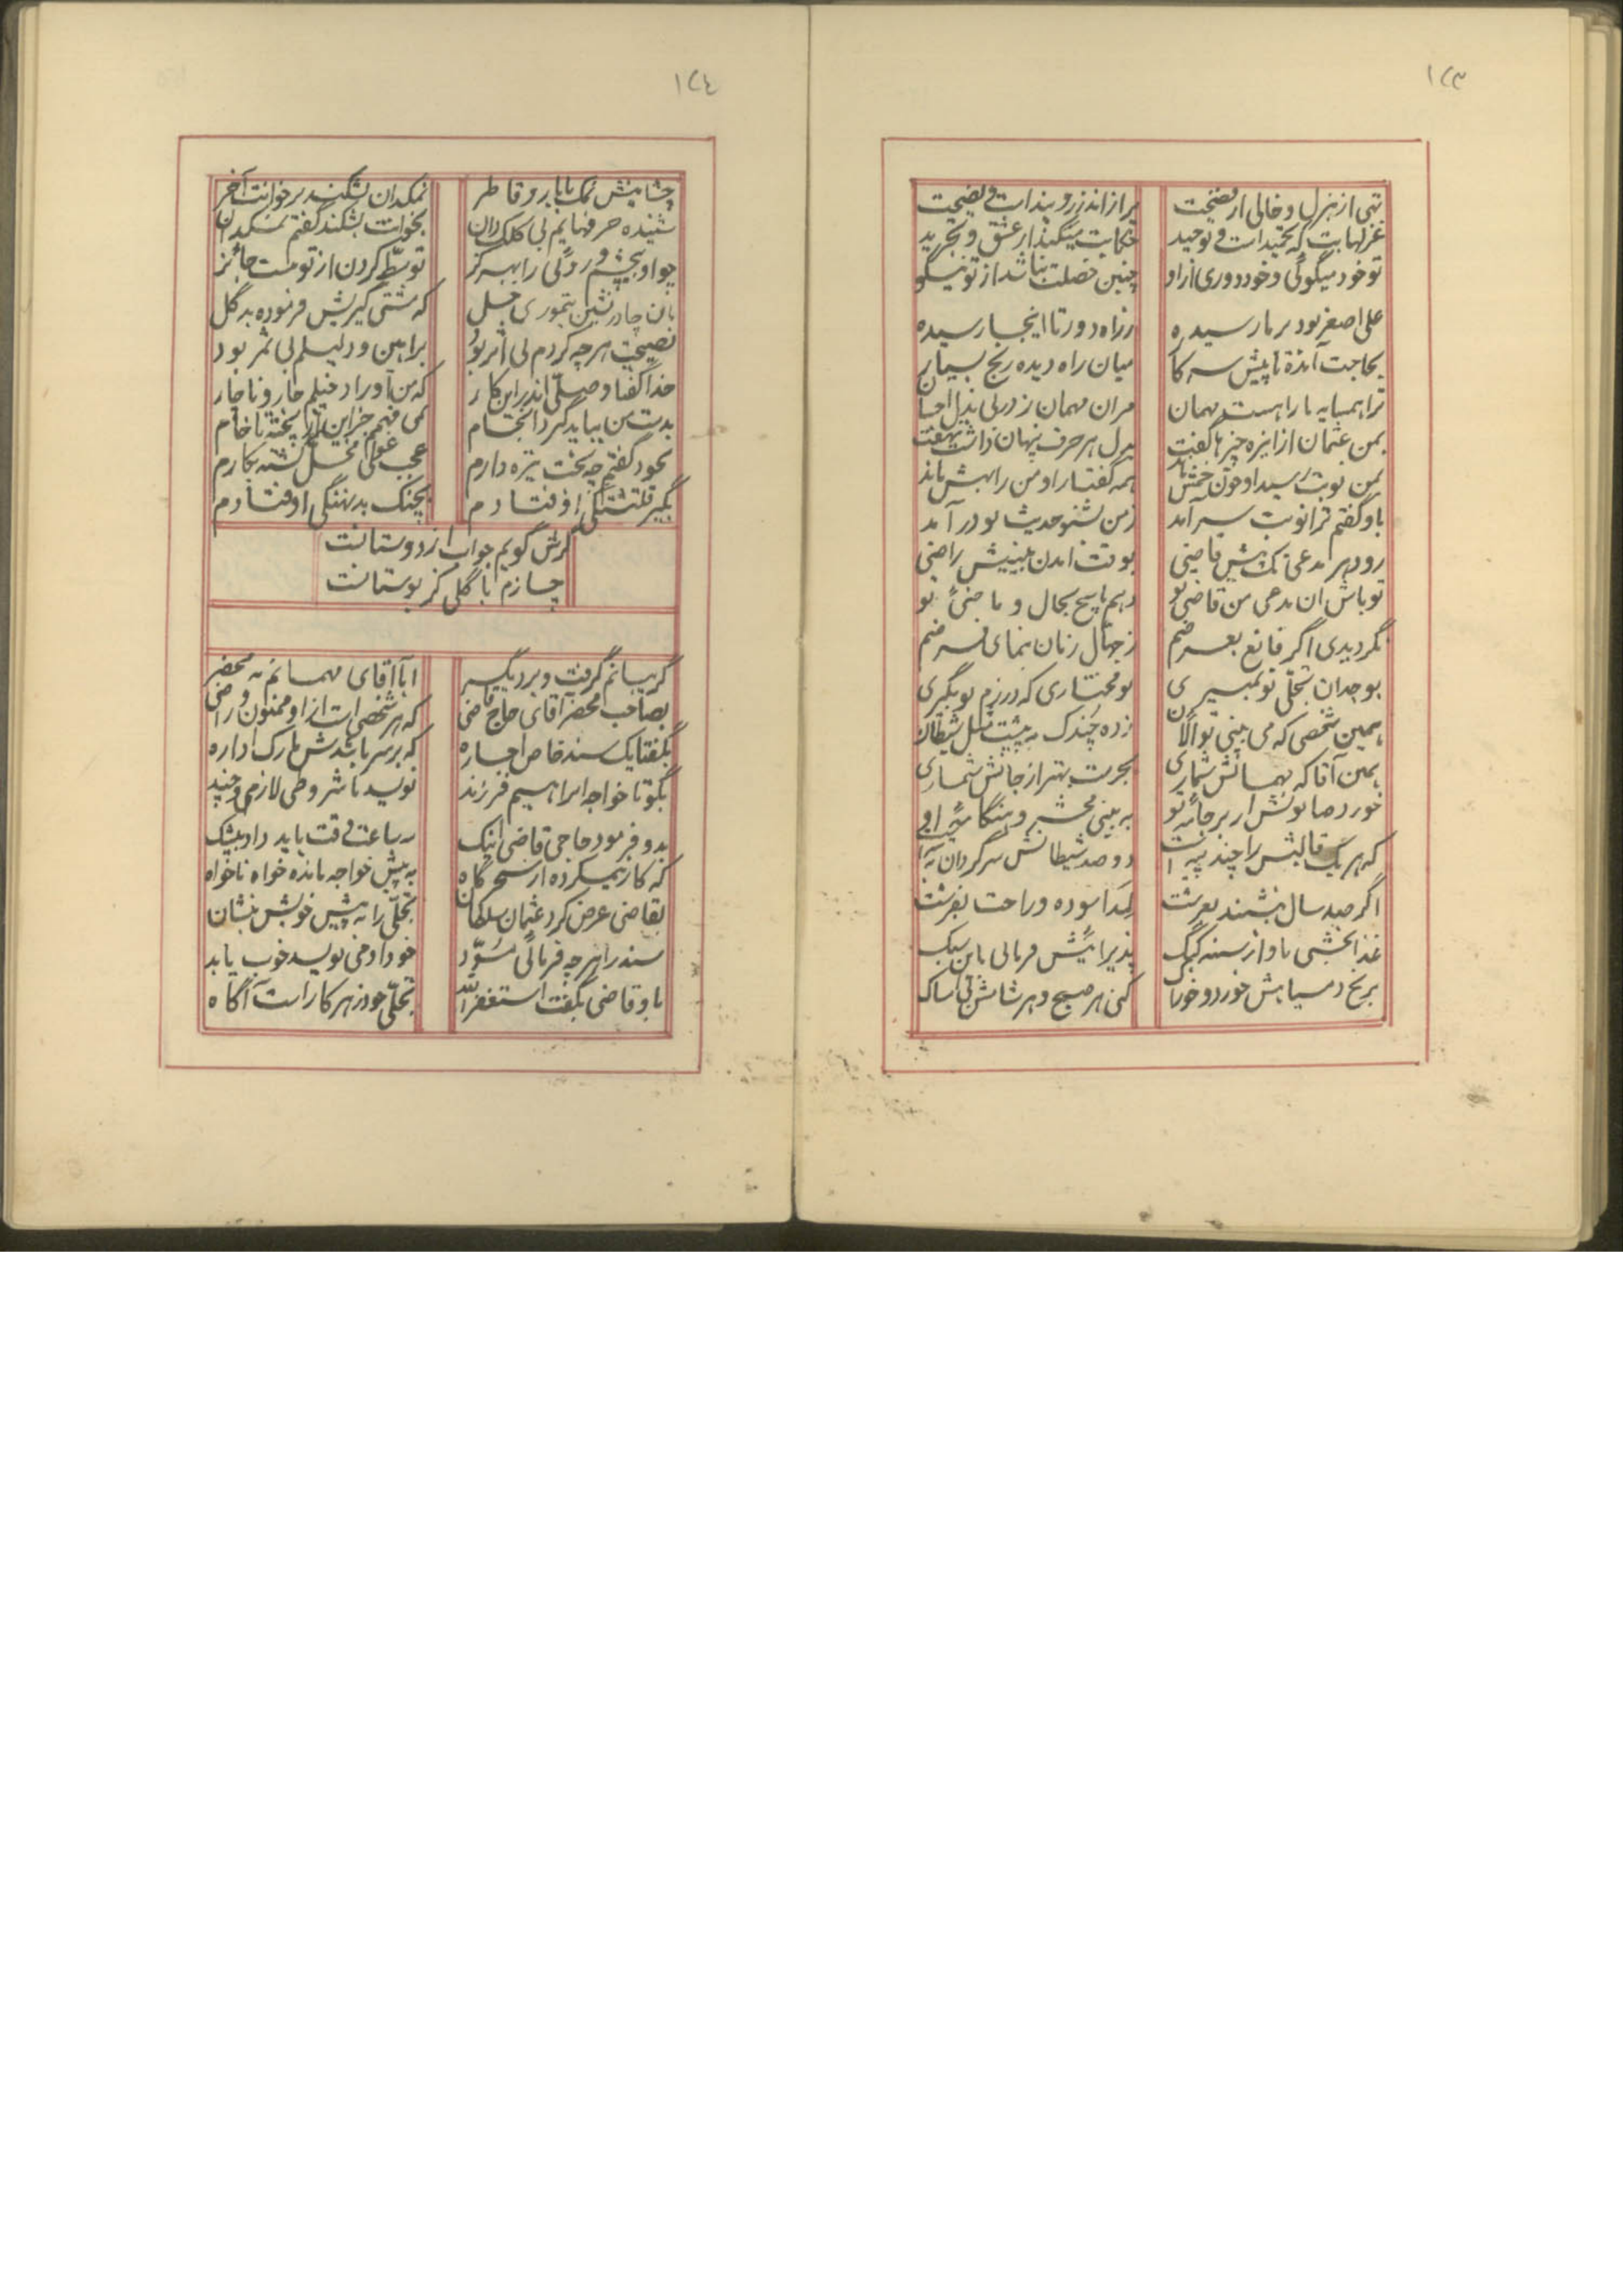 ١٢٣
تهی از هزل و خالی از فضیحت
پر از اندرز و پند است و نصیحت
غزلهایت که تحمید است و توحید
حکایت میکند از عشق و تجرید
تو خود میگوئی و خود دوری از او
چنین خصلت نباشد از تو نیکو
علی اصغر بود بر ما رسیده
ز راه دور تا اینجا رسیده
بحاجت آمده تا پیش سرکار
میان راه دیده رنج بسیار
ترا همسایه ما را هست مهمان
مران مهمان ز در
بمن عثمان از اینره چیزها گفت
بدل هر حرف پنهان داشت بنهفت
بمن نوبت رسید او چون خمش ماند
همه گفتار او من را بهش ماند
باو گفتم ترا نوبت سر آمد
ز من بشنو حدیث نو در آمد
رود هر مدعی تک پیش قاضی
بوقت آمدن بینیش راضی
تو باش آن مدعی من قاضی تو
دهم پاسخ بحال و ماضی تو
نگردیدی اگر قانع بعرضم
ز جهال زنان بنمای فرضم
بوجدان تجلی تو نمیری
تو مختاری که در رزم تو بگیری
همین شخصی که می بینی تو الان
زده چندک به پشت شیطان
همین آقا که مهمانش شماری
بحرمت بهتر از جانش شماری
خورد صابونش ار بر جامه تو
به بینی محشر و هنگامه تو
که هر یک قالبش را چند
دو صد شیطانش سرگردان
اگر صد سال بنشیند بعرشت
لمد آسوده و راحت بفرشت
غذا بخشی باو از سینه کبک
پذیرائیش فرمائی باین سبک
برنج دمسیاهش خورد و خوراک
کنی هر صبح و هر شامش بی امساک
١٢٤
چشانیش نمک بابا برو قاطر
نمکدان بشکند بر خوانت آخر
شنیده حرفهایم بی کلک دان
بخوانت بشکند گفتم نمکدان
چو او بیچشم و روئی را بهرگز
توسط کردن از تو نیست جائز
بآن چادر نشین تیموری جل
که مشتی گیریش فرموده بد گل
نصیحت هرچه کردم بی اثر بود
براهین و دلیلم بی ثمر بود
خدا گفتا و صلی اندر این کار
که من او را دخیلم چار و ناچار
بدست من بباید گردد انجام
نمی فهمم جز این را پخته یا خام
بخود گفتم چه بخت تیره دارم
عجب غولی مخل گشته بکارم
بگیر قلتشنگی اوفتادم
بچنگ بد نهنگی اوفتادم
گرش گویم جواب از دوستانت
چسازم با گلی کز بوستانت
گریبانم گرفت و برد یکسر
ابا آقای مهمانم به محضر
بصاحب محضر آقای حاج قاضی
که هر شخصی است از او ممنون و راضی
بگفتا یک سند خاص اجاره
که بر سر باشدش مارک اداره
بگو تا خواجه ابراهیم فرزند
نویسد با شروطی لازمی چند
بدو فرمود حاجی قاضی اینک
سه ساعت وقت باید داد بیشک
که کار نیمکرده از سحرگاه
به پیش خواجه مانده خواه ناخواه
بقاضی عرض کرد عثمان سلطان
تجلی را به پیش خویش بنشان
سند را هر چه فرمائی مسود
خود او می نویسد خوب یا بد
باو قاضی بگفت استغفرالله
تجلی خود ز هر کار است آگاه